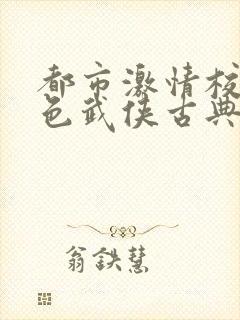 都市激情校
色武侠古典
翁鉄慧